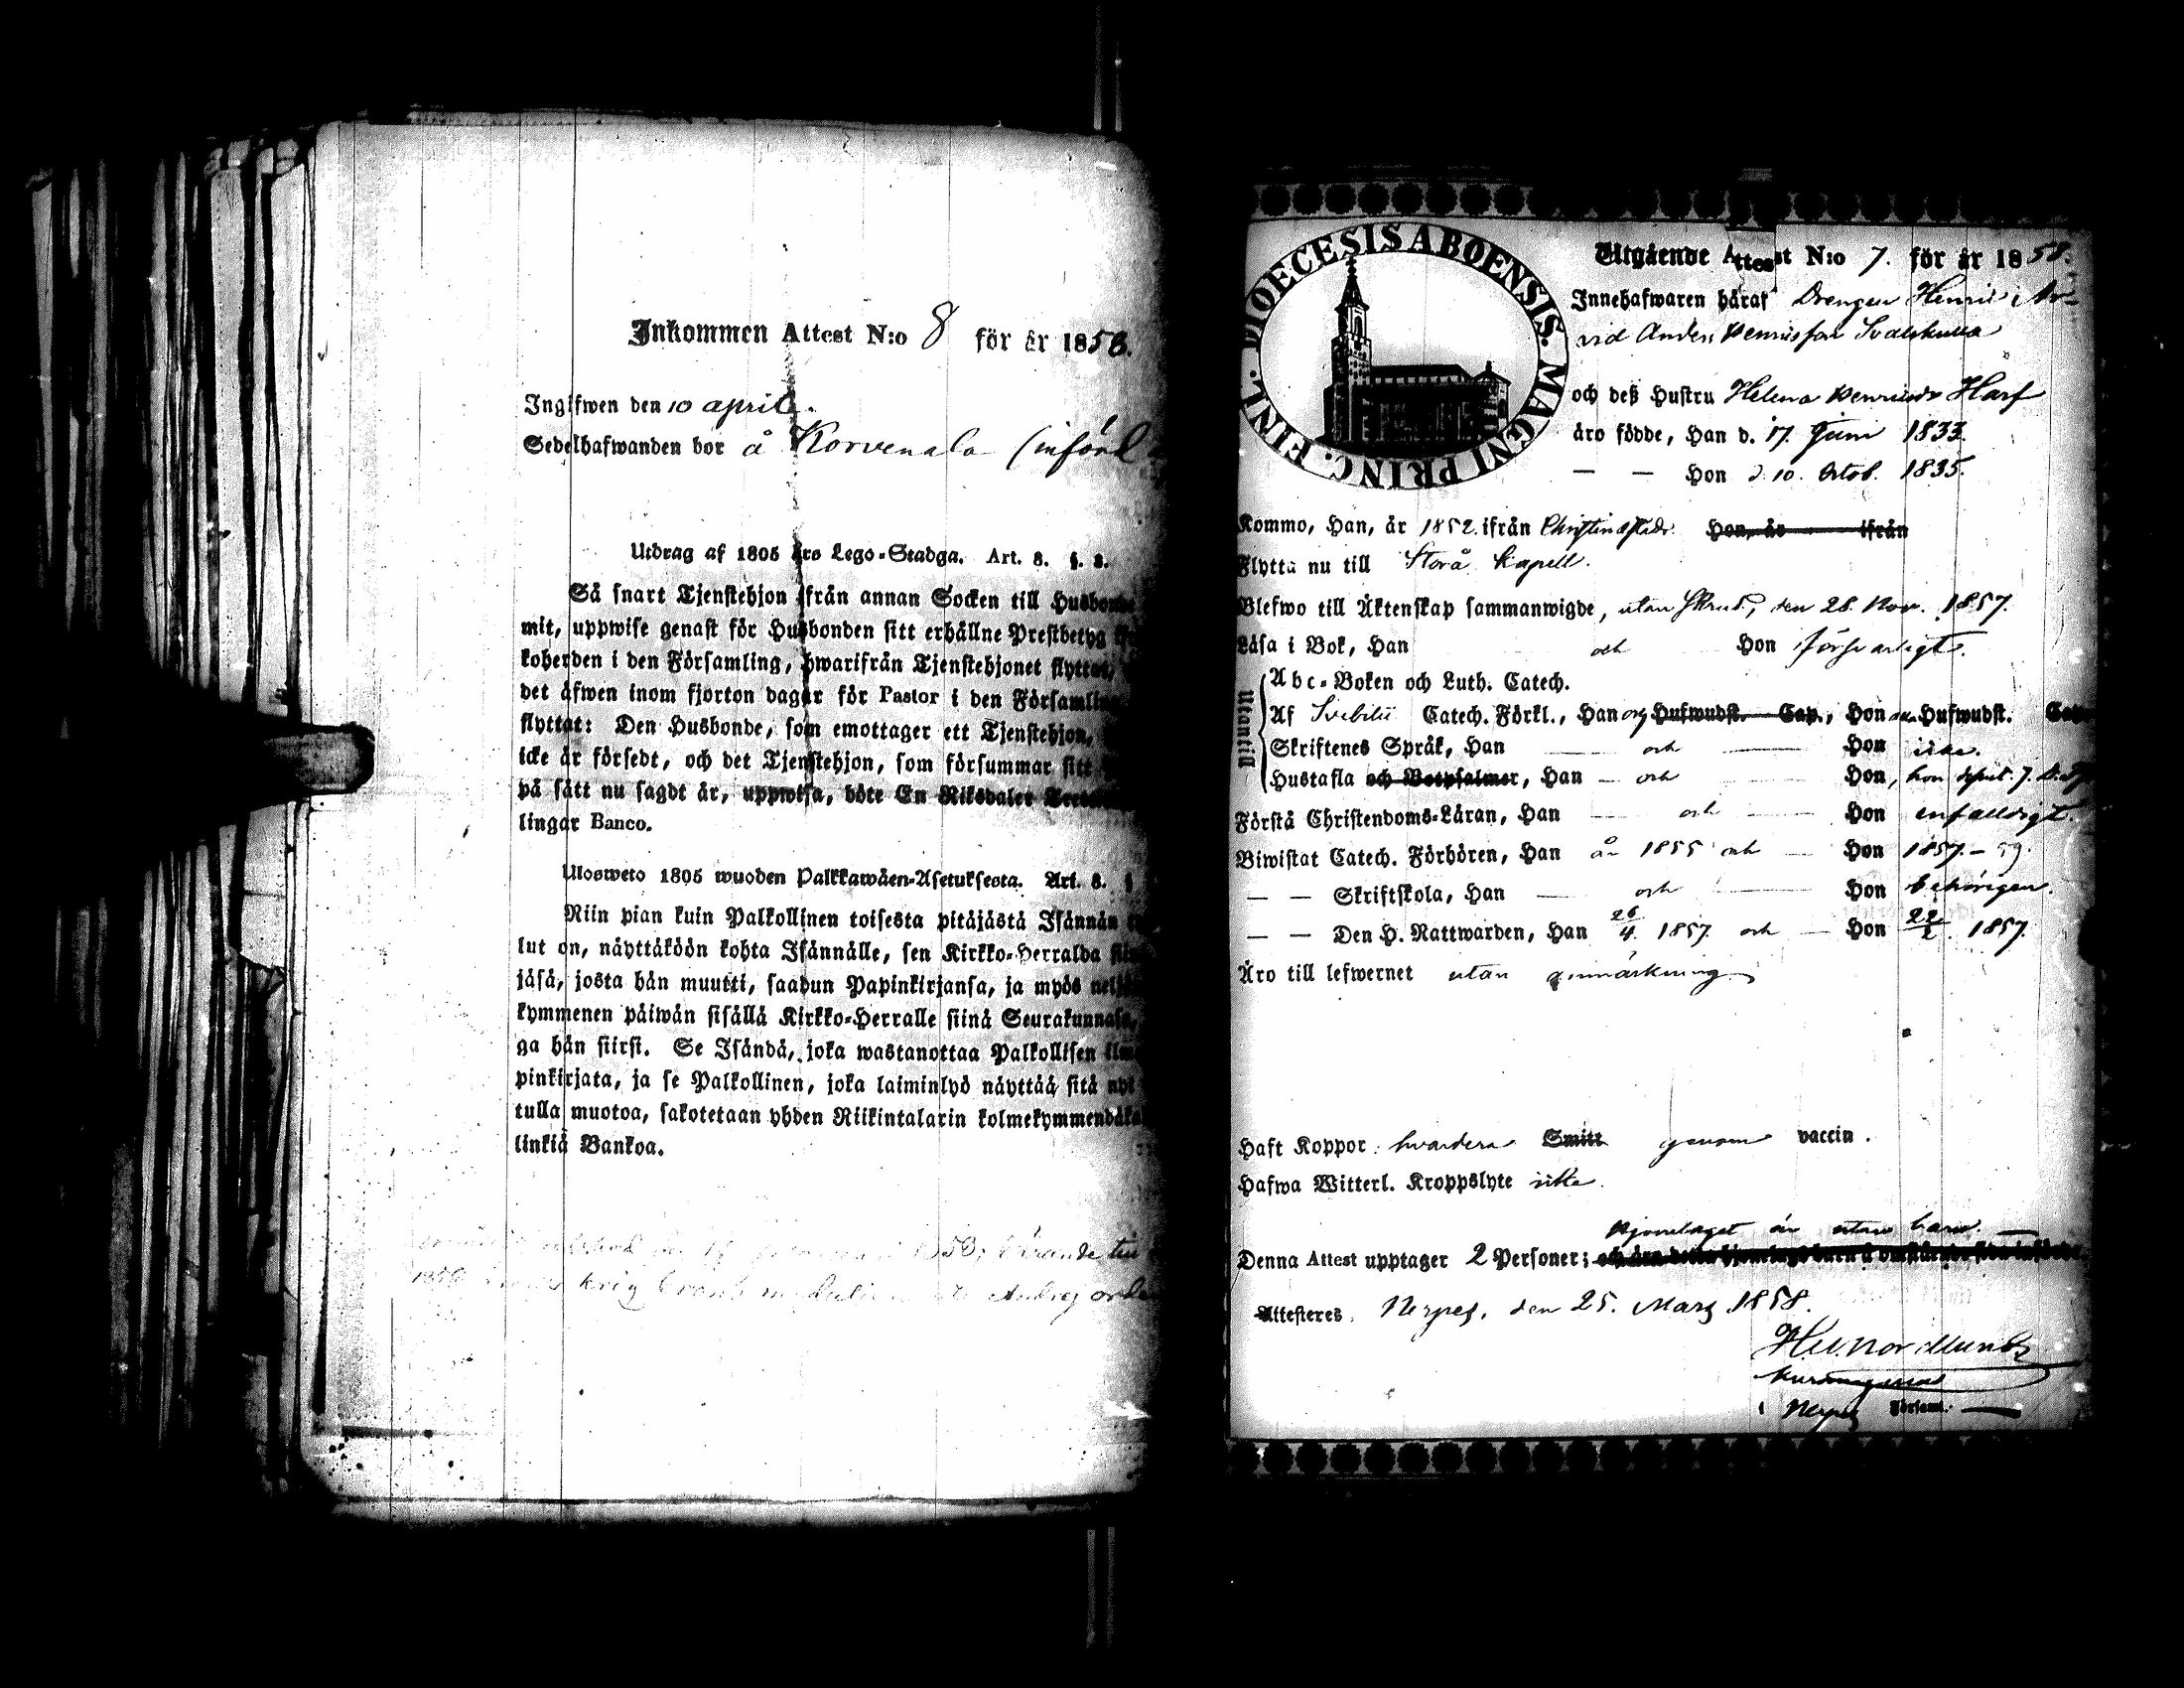 Inkommen Attest N:o 8 för år 1858.
Ingifwen den 10 april.
Sedelhafwanden bor å Korvenala (införd
Utdrag af 1805 års Lego-Stadga. Art. 8. §. 3.
Så snart Tjenstehjon ifrån annan Socken till Husbonde
mit, uppwise genast för Husbonden sitt erhållne Prestbetyg
koherden i den Församling, hwarifrån Tjenstehjonet flyttat,
det äfwen inom fjorton dagar för Pastor i den Församling
flyttat: Den Husbonde, som emottager ett Tjenstehjon,
icke är försedt, och det Tjenstehjon, som försummar sitt
på sätt nu sagdt är, uppwisa, böte En Riksdaler
lingar Banco.
Ulosweto 1805 wuoden Palkkawäen-Asetuksesta. Art. 8. §
Niin pian kuin Palkollinen toisesta pitäjästä Isännän
lut on, näyttäköön kohta Isännälle, sen Kirkko-Herralda
jäsä, josta hän muutti, saadun Papinkirjansa, ja myös
kymmenen päiwän sisällä Kirkko-Herralle siinä Seurakunnasa,
ga hän siirsi. Se Isändä, joka wastanottaa Palkollisen
pinkirjata, ja se Palkollinen, joka laiminlyö näyttää sitä
tulla muotoa, sakotetaan yhden Riikintalarin kolmekymmendäkahdexan
linkiä Bankoa.
DIOECESIS ABOENSIS. MAGNI PRINC. FINL.
Utgående Attest N:o 7. för år 1858.
Innehafwaren häraf Drengen Henric Ar-
vid Anders Henricsson Svalskulla
och deß Hustru Helena Henricsdr Harf
äro födde, Han d. 17. Juni 1833.
— — Hon d. 10. Octob. 1835.
Kommo, Han, år 1852. ifrån Christinæstad. Hon, år ifrån
Flytta nu till Storå Kapell.
Blefwo till Äktenskap sammanwigde, utan Skrud, den 28. Nov. 1857.
Läsa i Bok, Han och Hon försvarligt.
Utantill
Abc-Boken och Luth. Catech.
Af Svebilii Catech. Förkl., Han och Hufwudst. Cap., Hon Hufwudst. Cap
Skriftenes Språk, Han — och — Hon icke.
Hustafla och Botpsalmer, Han — och — Hon,
Förstå Christendoms-Läran, Han — och — Hon enfalldigt.
Biwistat Catech. Förhören, Han år 1855 och — Hon 1857.
— — Skriftskola, Han — och — Hon behörigen.
— — Den H. Nattwarden, Han 26/4. 1857. och — Hon 22/2. 1857.
Äro till lefwernet utan anmärkning.
Haft Koppor: hvardera Smitt genom vaccin.
Hafwa Witterl. Kroppslyte icke.
Hjonelaget är utan barn.
Denna Attest upptager 2 Personer;
Attesteres, Nerpes, den 25. Mars 1858.
H. Nordlund
i Nerpes Församl.